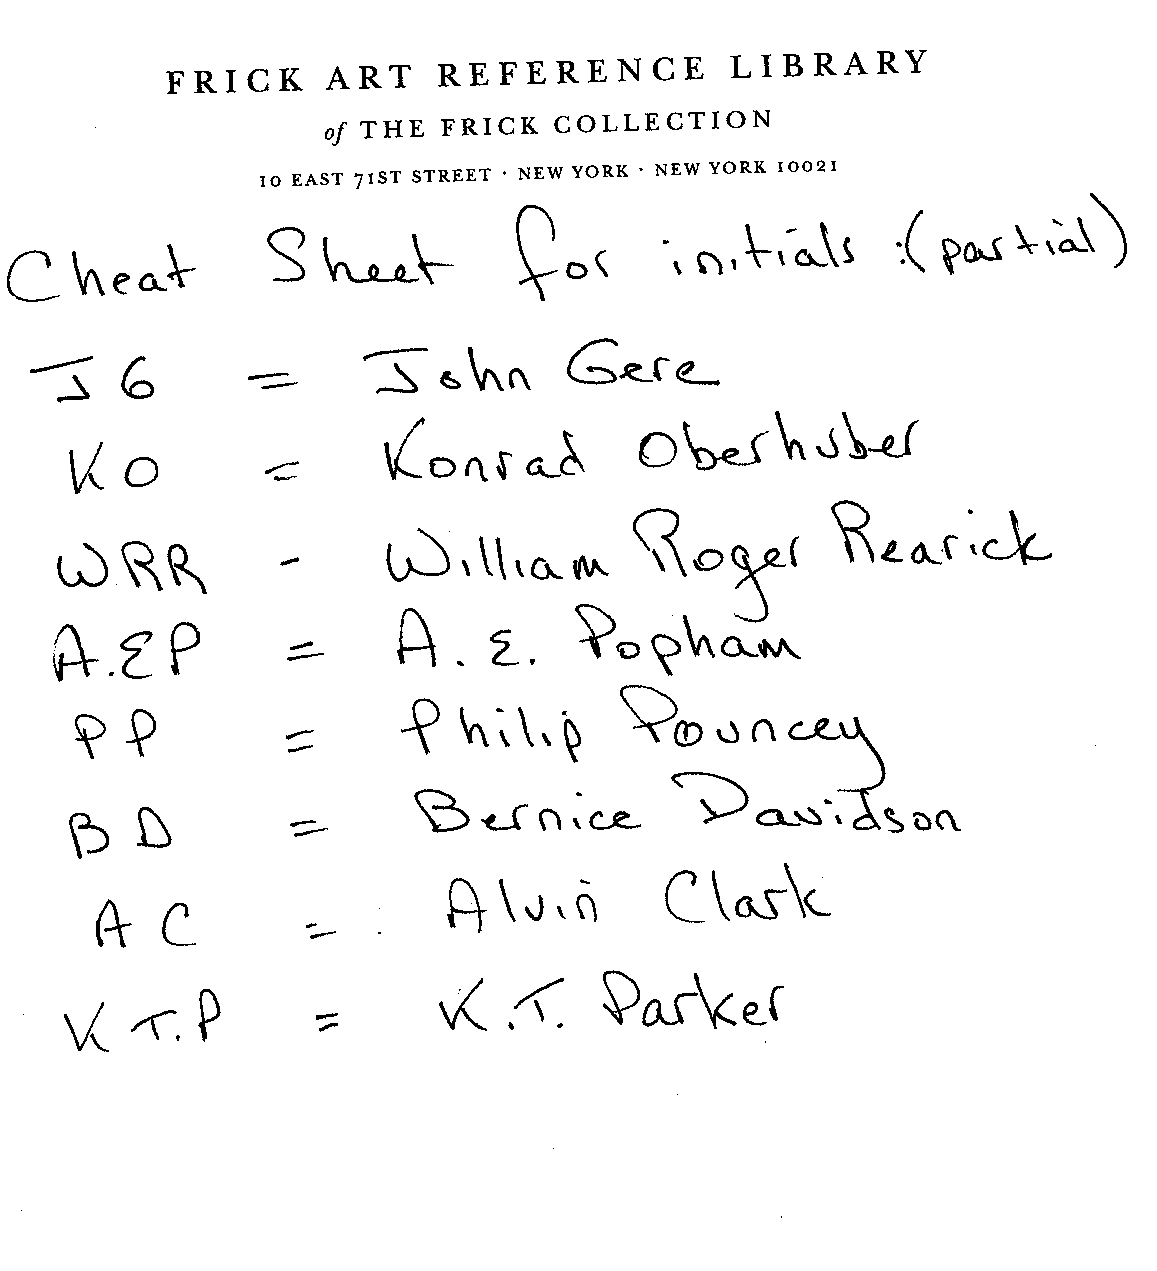 FRICK ART REFERENCE LIBRARY
of THE FRICK COLLECTION
10 EAST 71ST STREET · NEW YORK · NEW YORK 10021
Cheat Sheet for initials :(partial)
JG = John Gere
KO = Konrad Oberhuber
WRR - William Roger Rearick
A.EP = A. E. Popham
PP = Philip Pouncey
BD = Bernice Davidson
AC = Alvin Clark
KT.P = K.T. Parker